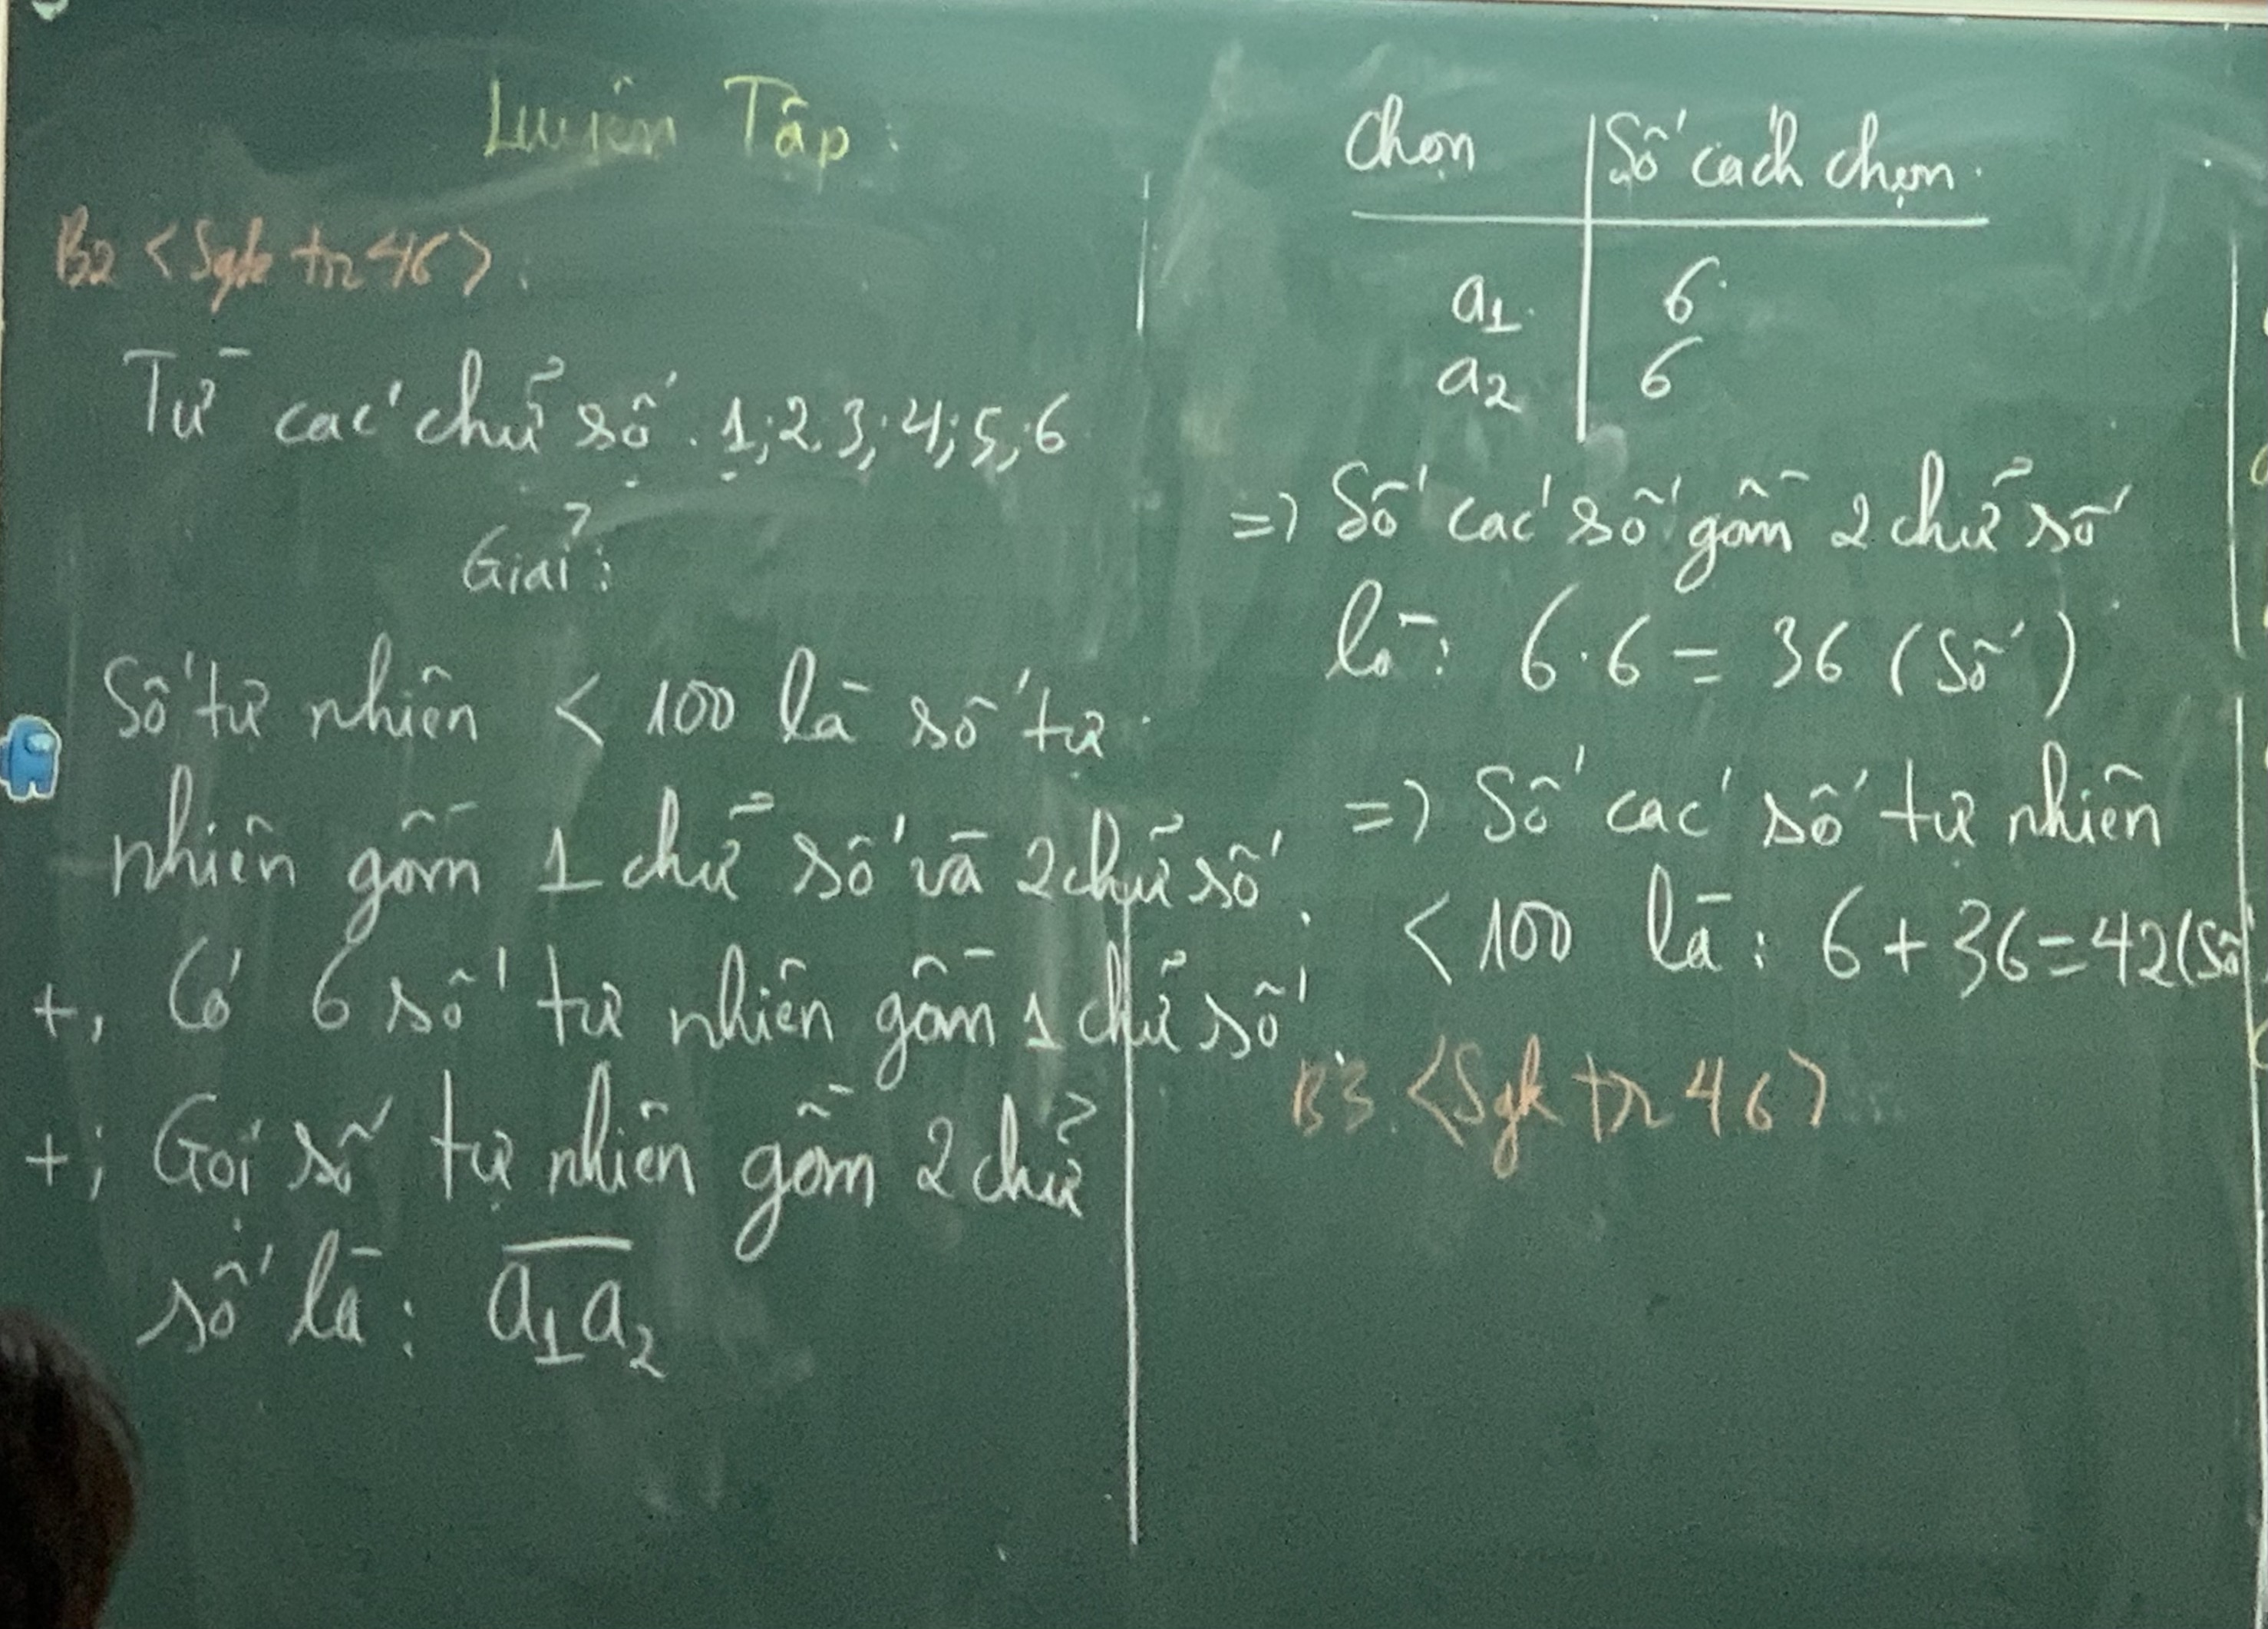 Luyện Tập:
B2 <Sgk tr 46>.
Từ các chữ số: 1; 2; 3; 4; 5; 6
Giải:
Số tự nhiên < 100 là số tự
nhiên gồm 1 chữ số và 2 chữ số.
+, Có 6 số tự nhiên gồm 1 chữ số
+; Gọi số tự nhiên gồm 2 chữ
số là: a₁a₂
Chọn | Số cách chọn.
a₁ | 6
a₂ | 6
=> Số các số gồm 2 chữ số
là: 6.6 = 36 (số)
=> Số các số tự nhiên
< 100 là: 6 + 36 = 42 (số
B3. <Sgk tr 46>